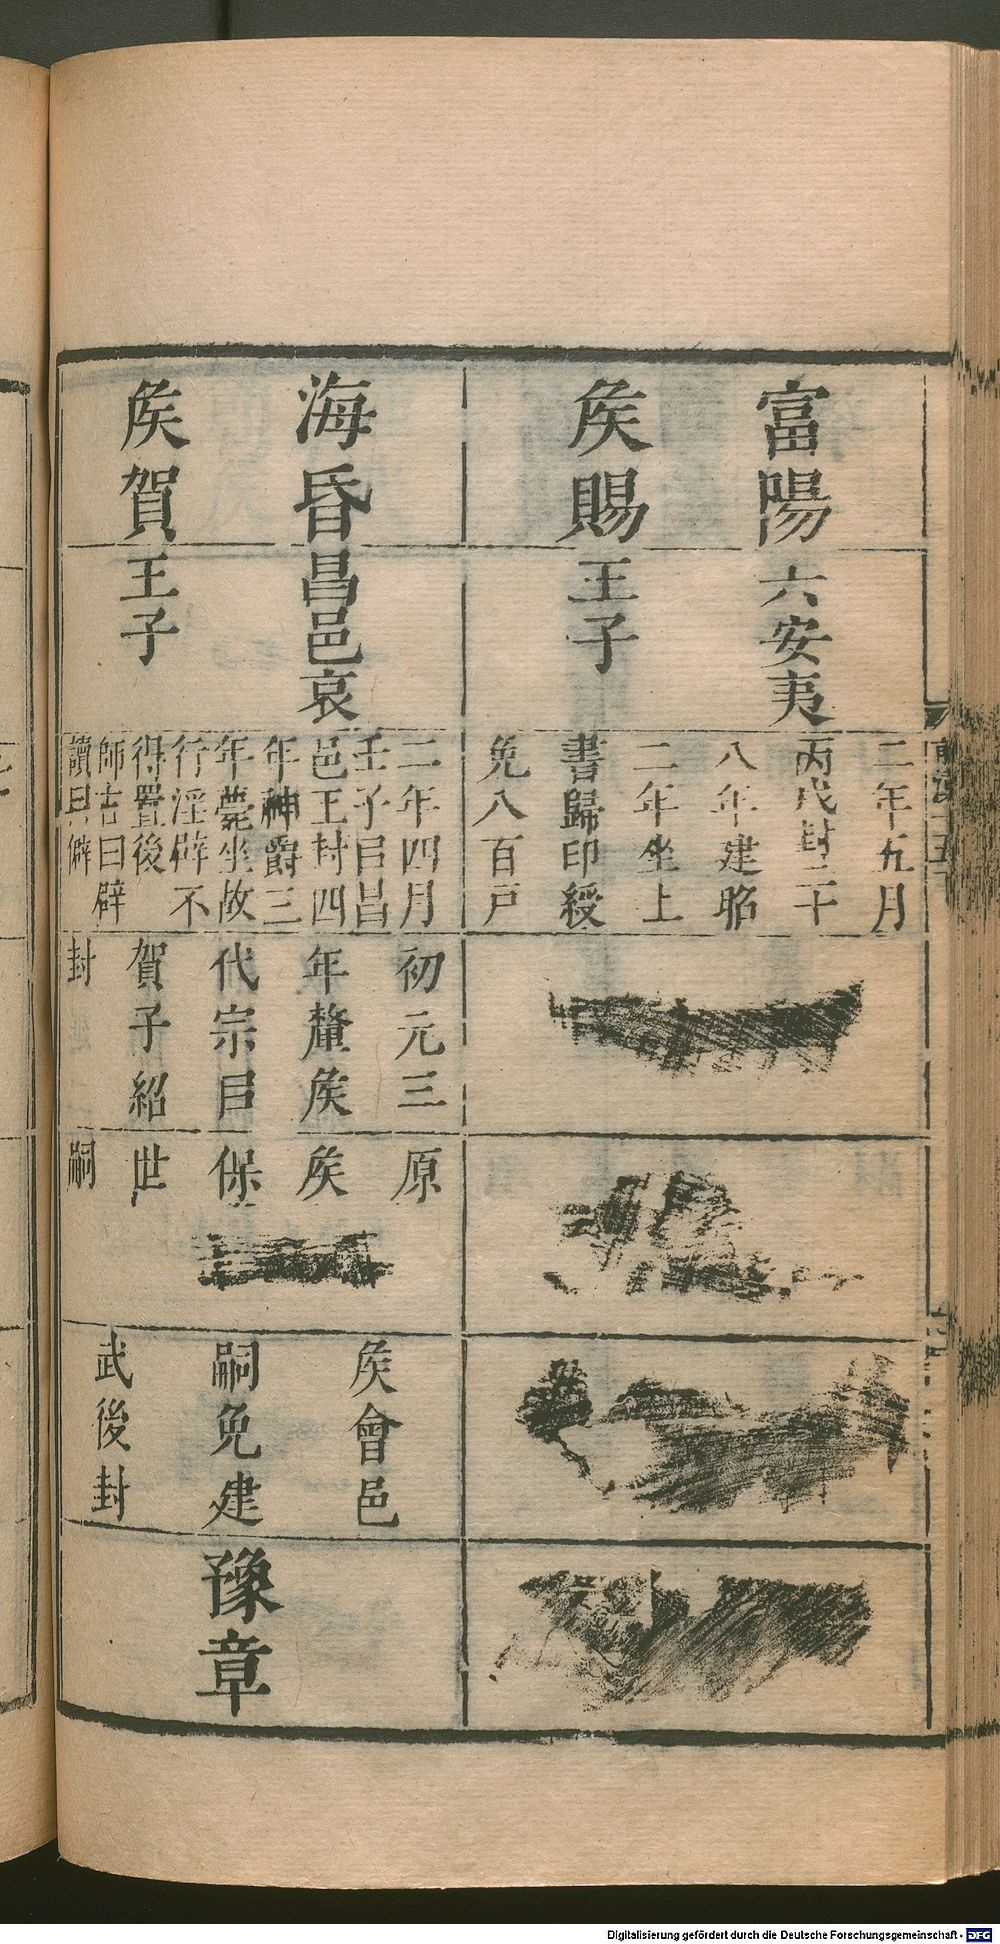 富陽
矦賜
六安夷
王子
二年五月
丙戌封二十
八年建昭
二年坐上
書歸印綬
免八百戸
海昏
矦賀
昌邑哀
王子
二年四月
壬子㠯昌
邑王封四
年神爵三
年薨坐故
行淫辟不
得置後
師古曰辟
讀曰僻
初元三
年釐矦
代宗㠯
賀子紹
封
原
矦
保
世
嗣
矦會邑
嗣免建
武後封
豫章
前漢十五
Digitalisierung gefördert durch die Deutsche Forschungsgemeinschaft - DFG